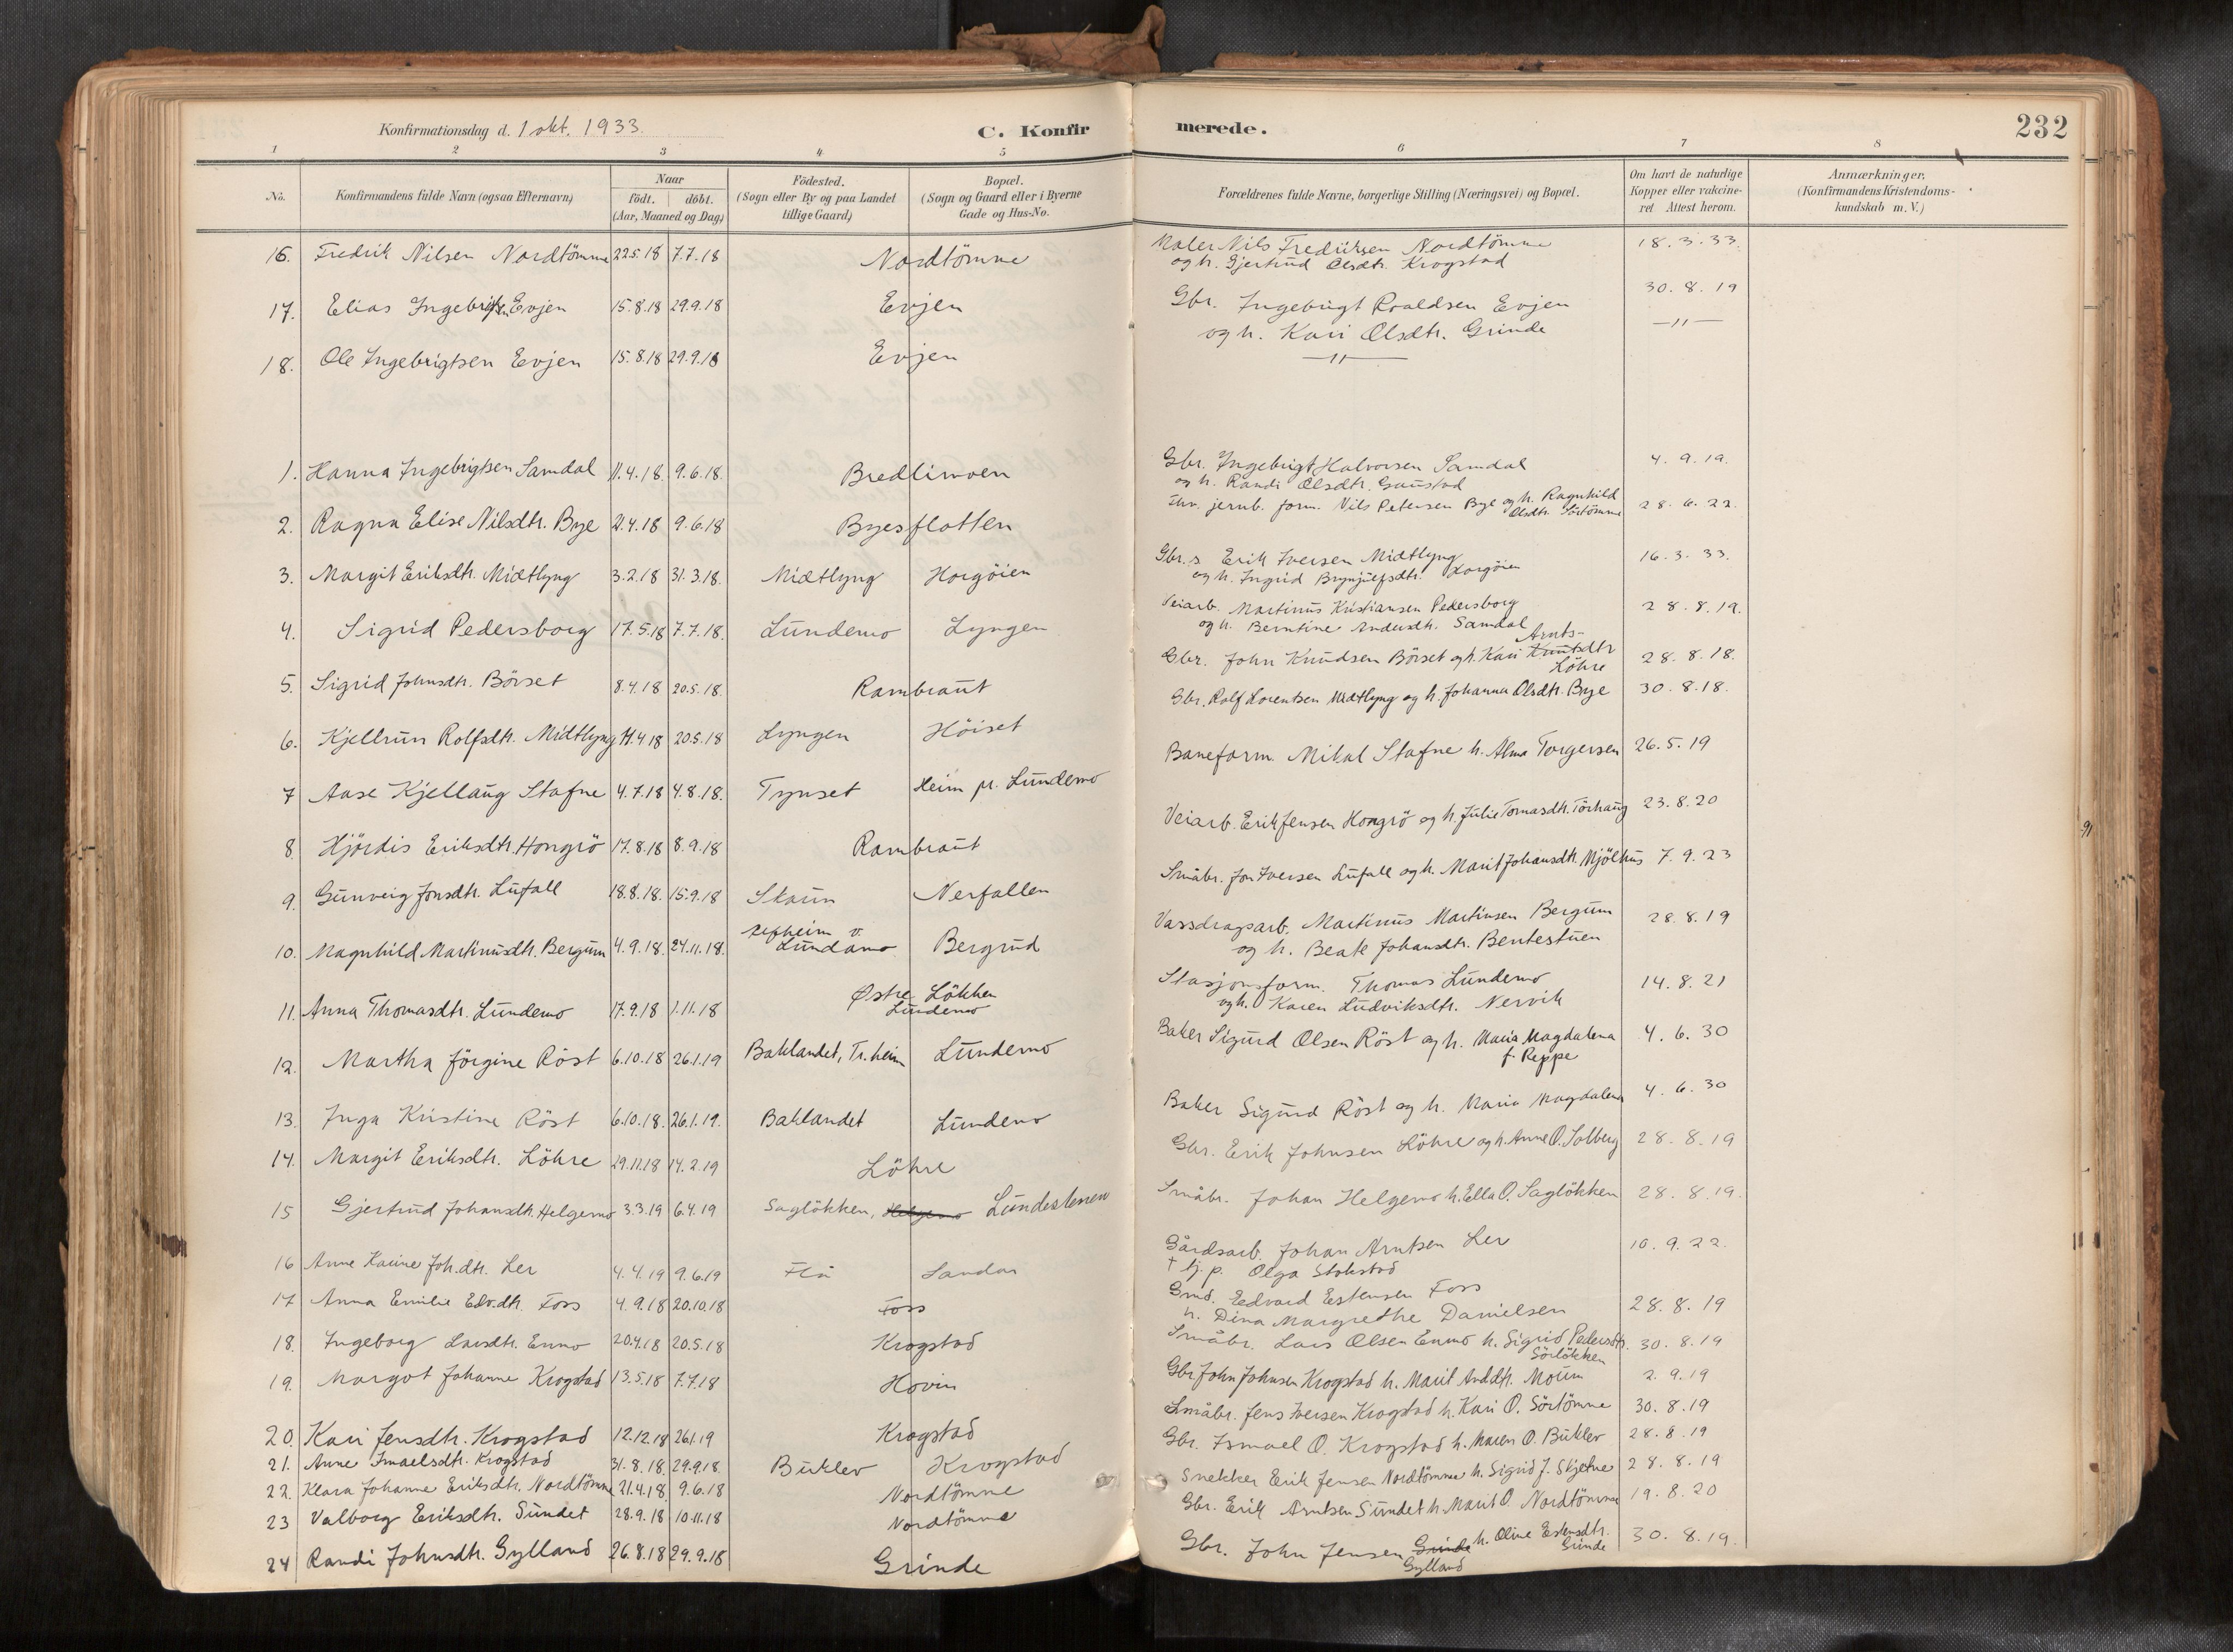 Konfirmationsdag d. 1 okt. 1933.
C. Konfirmerede.
232
1 2 3 4 5 6 7 8
No.
Konfirmandens fulde Navn (ogsaa Efternavn)
Naar
födt. döbt.
(Aar, Maaned og Dag)
Födested.
(Sogn eller By og paa Landet
tillige Gaard)
Bopæl.
(Sogn og Gaard eller i Byerne
Gade og Hus-No.
Forældrenes fulde Navne, borgerlige Stilling (Næringsvei) og Bopæl.
Om havt de naturlige
Kopper eller vakcine-
ret Attest herom.
Anmærkninger.
(Konfirmandens Kristendoms-
kundskab m.V.)
16. Fredrik Nilsen Nordtömme 22.5.18 7.7.18 Nordtömme Maler Nils Fredriksen Nordtömme 18.3.33.
og h. Gjertrud Olsdtr. Krogstad
17. Elias Ingebrigtsen Evjen 15.8.18 29.9.18 Evjen Gbr. Ingebrigt Roaldsen Evjen 30.8.19
og h. Kari Olsdtr. Grinde
18. Ole Ingebrigtsen Evjen 15.8.18 29.9.18 Evjen —"— —"—
1. Hanna Ingebrigtsen Samdal 11.4.18 9.6.18. Bredlimoen Gbr. Ingebrigt Halvorsen Samdal 4.9.19.
og h. Randi Olsdtr. Gaustad
2. Ragna Elise Nilsdtr. Bye 21.4.18 9.6.18 Byesflotten jernb. form. Nils Petersen Bye og h. Ragnhild 28.6.22.
Olsdtr. Sörtömme
3. Margit Eriksdtr. Midtlyng 3.2.18 31.3.18. Midtlyng Horgöien Gbr.s Erik Iversen Midtlyng 16.3.33.
og h. Ingrid Brynjulfsdtr. Horgöien
4. Sigrid Pedersborg 17.5.18 7.7.18. Lundemo Lyngen Veiarb. Martinus Kristiansen Pedersborg 28.8.19.
og h. Berntine Andersdtr. Samdal
5. Sigrid Johnsdtr. Börset 8.4.18 20.5.18. Rambraut Gbr. John Knudsen Börset og h. Kari Knutsdtr Arnts- 28.8.18.
Löhre
6. Kjellrun Rolfsdtr. Midtlyng 14.4.18 20.5.18 Lyngen Höiset Gbr. Rolf Lorentsen Midtlyng og h. Johanna Olsdtr. Bye 30.8.18.
7 Aase Kjellaug Stafne 4.7.18 4.8.18. Tynset Heim pr. Lundemo Baneform. Mikal Stafne h. Alma Torgersen 26.5.19
8. Hjördis Eriksdtr. Hongrö 17.8.18 8.9.18 Rambraut Veiarb. Erik Jensen Hongrö og h. Julie Tomasdtr. Törhaug 23.8.20
9. Gunveig Jonsdtr. Lufall 18.8.18. 15.9.18 Skaun Nerfallen Småbr. Jon Iversen Lufall og h. Marit Johansdtr. Mjölhus 7.9.23
10. Magnhild Martinusdtr. Bergum 4.9.18. 24.11.18. v. Lundamo Bergrud Vassdragsarb. Martinus Martinsen Bergum 28.8.19
og h. Beate Johansdtr. Bentestuen
11. Anna Thomasdtr. Lundemo 17.9.18 1.11.18 Østre Lökken Lundemo Stasjonsform. Thomas Lundemo 14.8.21
og h. Karen Ludviksdtr. Nervik
12. Martha Jörgine Röst 6.10.18 26.1.19 Baklandet, Tr.heim Lundemo Baker Sigurd Olsen Röst og h. Maria Magdalena 4.6.30
f. Reppe
13. Inga Kristine Röst 6.10.18. 26.1.19. Baklandet Lundemo Baker Sigurd Röst og h. Maria Magdalena 4.6.30
14. Margit Eriksdtr. Löhre 29.11.18 14.2.19 Löhre Gbr. Erik Johnsen Löhre og h. Anne O. Solberg 28.8.19
15 Gjertrud Johansdtr. Helgemo 3.3.19 6.4.19 Saglökken, Helgemo Lundesteren Småbr. Johan Helgemo h. Ella O. Saglökken 28.8.19.
16 Anne Karine Joh.dtr. Ler 4.4.19 9.6.19 Flå Sandan Gårdsarb. Johan Arntsen Ler 10.9.22.
+ tj.p. Olga Stokstad
17 Anna Emilie Edv.dtr. Foss 4.9.18 20.10.18 Foss Gmd. Eedvard Estensen Foss 28.8.19
h. Dina Margrethe Danielsen
18. Ingeborg Larsdtr. Enmo 20.4.18 20.5.18 Krogstad Småbr. Lars Olsen Enmo h. Sigrid Pedersdtr. 30.8.19
Sörlökken
19. Margot Johanne Krogstad 13.5.18 7.7.18 Hovin Gbr John Johnsen Krogstad h. Marit And.dtr. Moum 2.9.19
20. Kari Jensdtr. Krogstad 12.12.18 26.1.19 Krogstad Småbr. Jens Iversen Krogstad h. Kari O. Sörtömme 30.8.19
21. Anne Ismaelsdtr. Krogstad 31.8.18. 29.9.18. Buklev Krogstad Gbr. Ismael O. Krogstad h. Maren O. Buklev 28.8.19
22. Klara Johanne Eriksdtr. Nordtömme 21.4.18 9.6.18 Nordtömme Snekker Erik Jensen Nordtömme h. Sigrid J. Skjetne 28.8.19
23 Valborg Eriksdtr. Sundet 28.9.18 10.11.18 Nordtömme Gbr. Erik Arntsen Sundet h. Marit O. Nordtömme 19.8.20
24 Randi Johnsdtr. Gylland 26.8.18 29.9.18 Grinde Gbr. John Jensen Grinde Gylland h. Oline Estensdtr. Grinde 30.8.19.
91